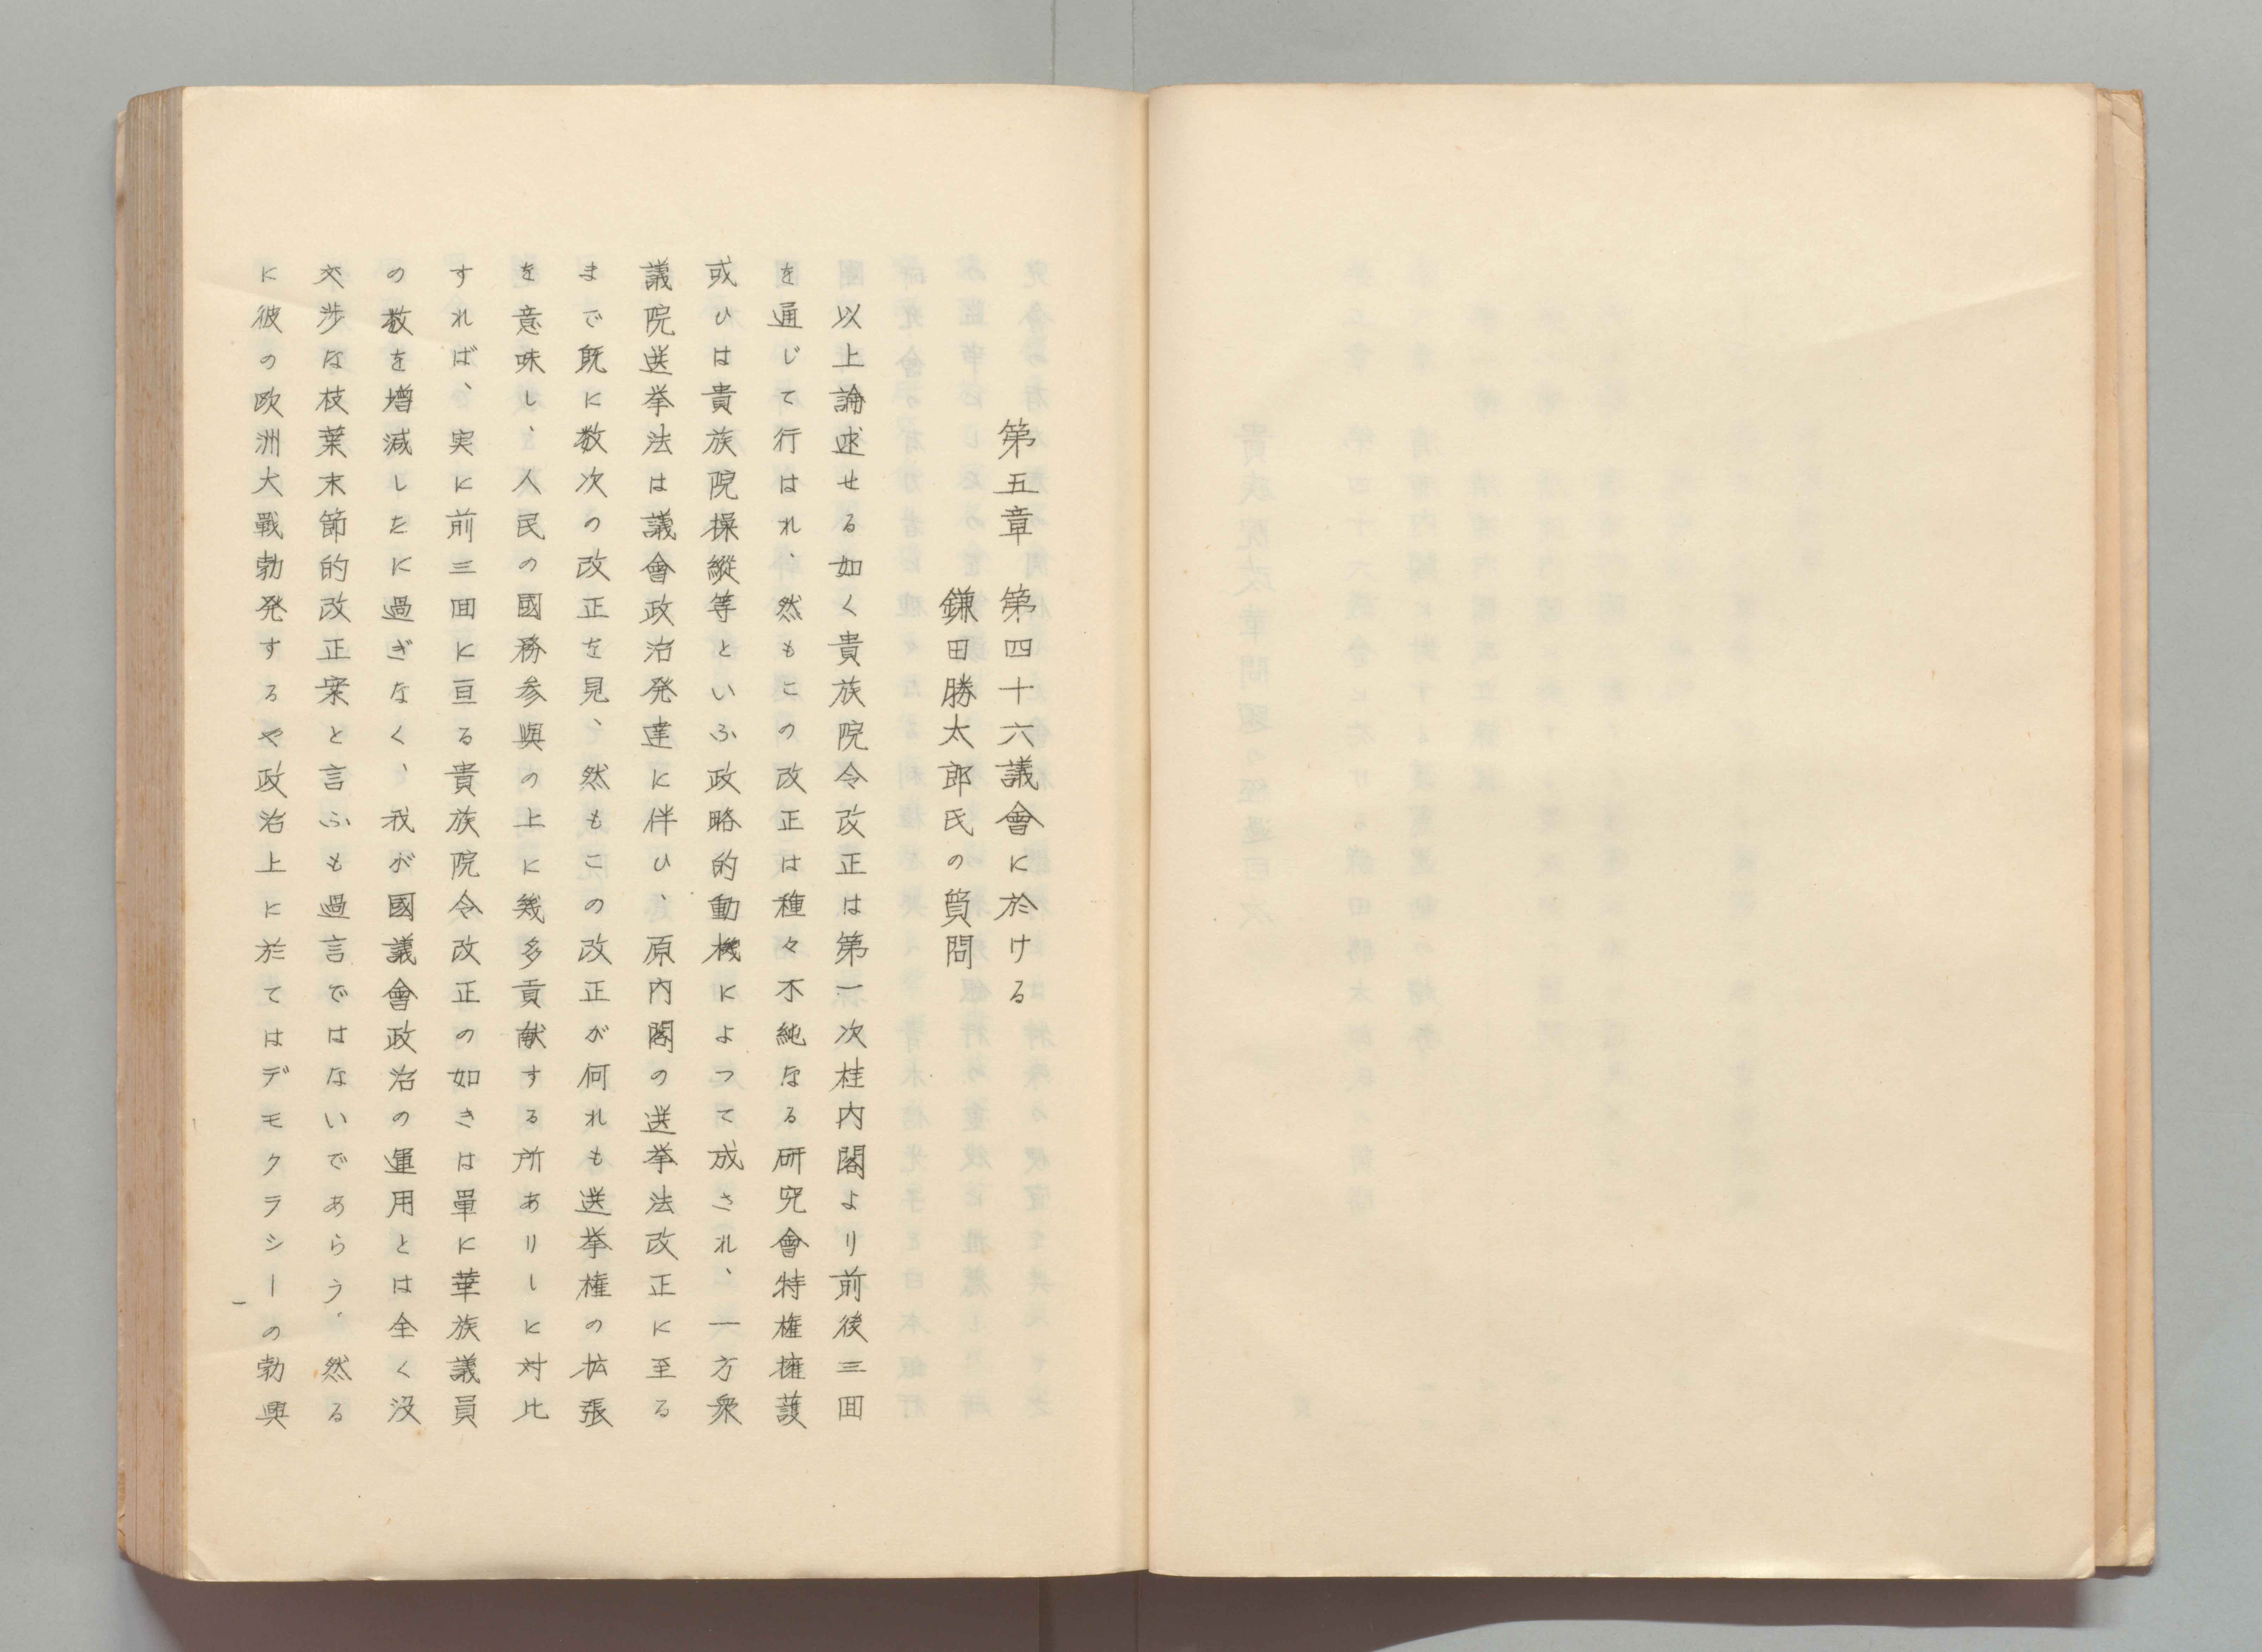 第五章　第四十六議會に於ける
鎌田勝太郎氏の質問
以上論述せる如く貴族院令改正は第一次桂内閣より前後三囬
を通じて行はれ、然もこの改正は種々不純なる研究會特権擁護
或ひは貴族院操縦等といふ政略的動機によつて成され、一方衆
議院選挙法は議會政治発達に伴ひ、原内閣の選挙法改正に至る
まで既に数次の改正を見、然もこの改正が何れも選挙権の拡張
を意味し、人民の國務参與の上に幾多貢献する所ありしに対比
すれば、実に前三囬に亘る貴族院令改正の如きは單に華族議員
の数を増減したに過ぎなく、我が國議會政治の運用とは全く没
交渉な枝葉末節的改正案と言ふも過言ではないであらう、然る
に彼の欧洲大戰勃発するや政治上に於てはデモクラシーの勃興
一